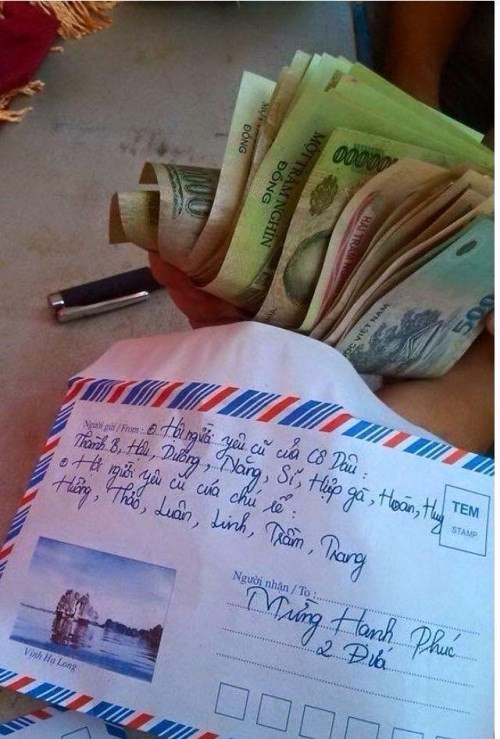 ĐỒNG
MỘT TRĂM NGHÌN
ĐỒNG
000001
HAI TRĂM
VIỆT NAM
500
Người gửi / From: Hội người yêu cũ của Cô Dâu:
Thành B, Hậu, Dưỡng, Năng, Sĩ, Hiệp gà, Hoàn, Huy
Hội người yêu cũ của chú rể:
Hường, Thảo, Luân, Linh, Trầm, Trang
TEM
STAMP
Người nhận / To:
Mừng Hạnh Phúc
2 Đứa
Vịnh Hạ Long